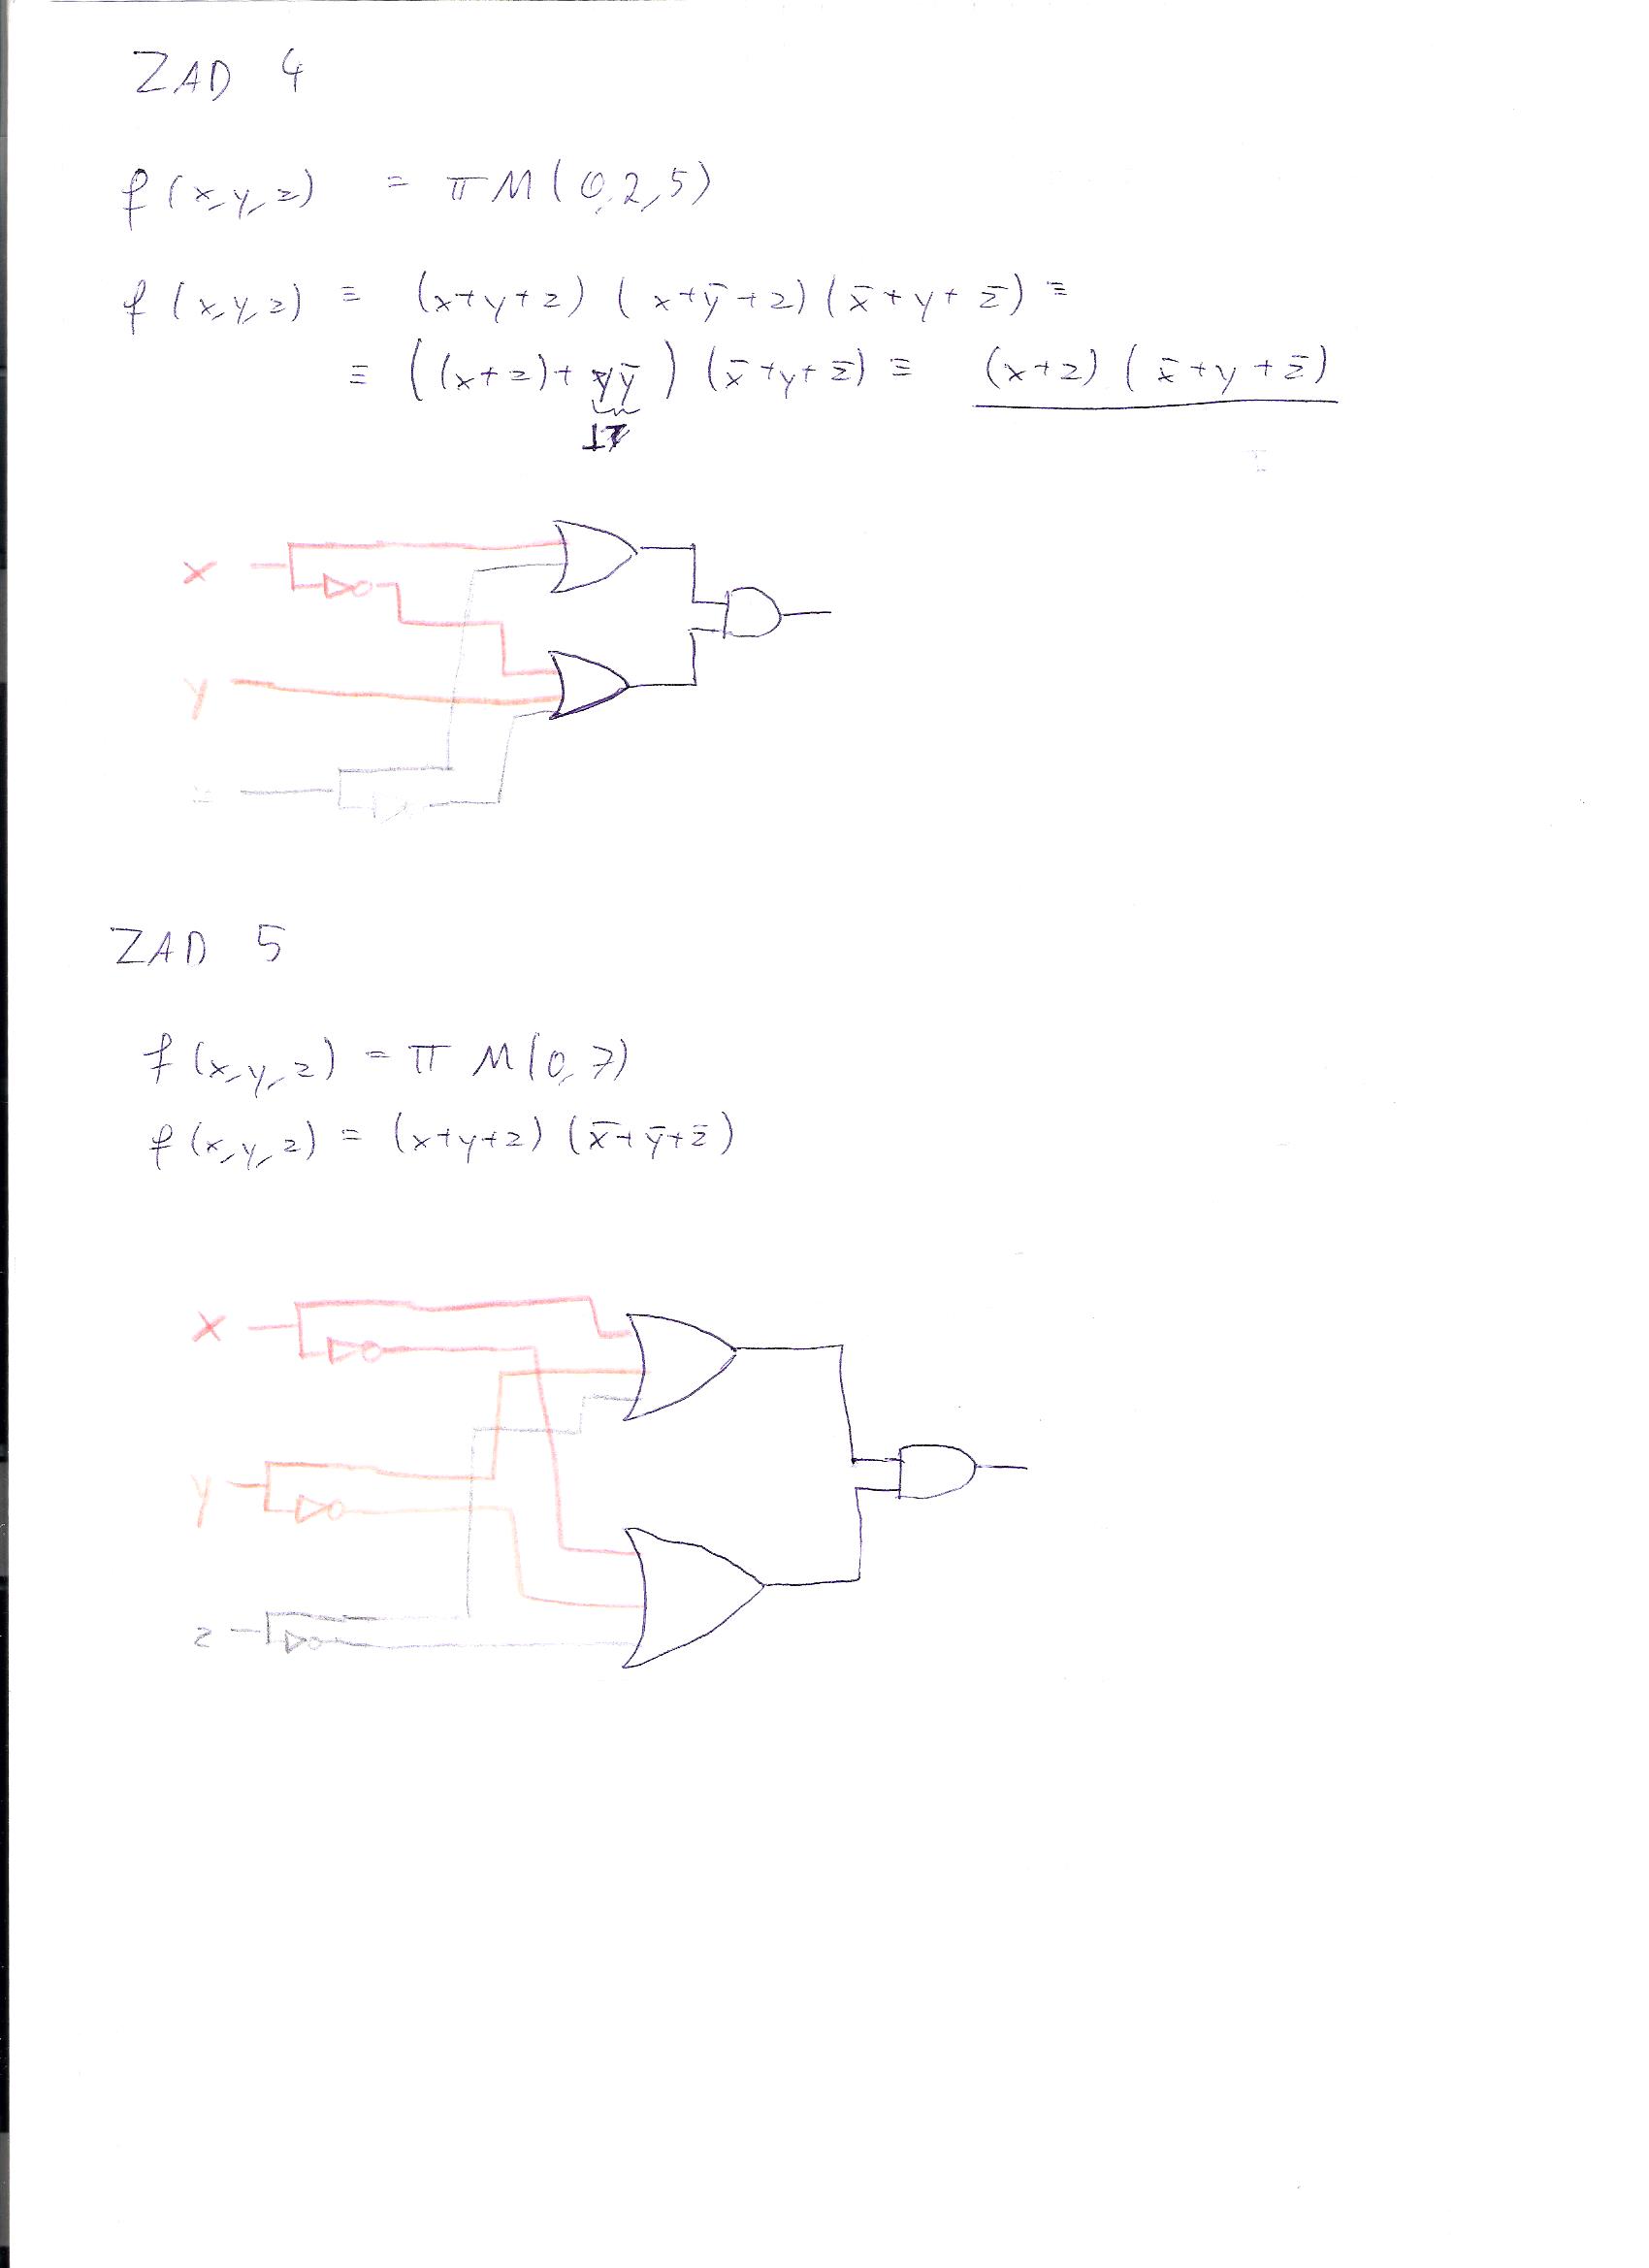 ZAD 4
f(x,y,z) = π M(0,2,5)
f(x,y,z) ≡ (x+y+z) (x+ȳ+z) (x̄+y+z̄) ≡
≡ ((x+z)+yȳ) (x̄+y+z̄) ≡ (x+z) (x̄+y+z̄)
x
y
ZAD 5
f(x,y,z) = π M(0,7)
f(x,y,z) = (x+y+z) (x̄+ȳ+z̄)
x
y
z